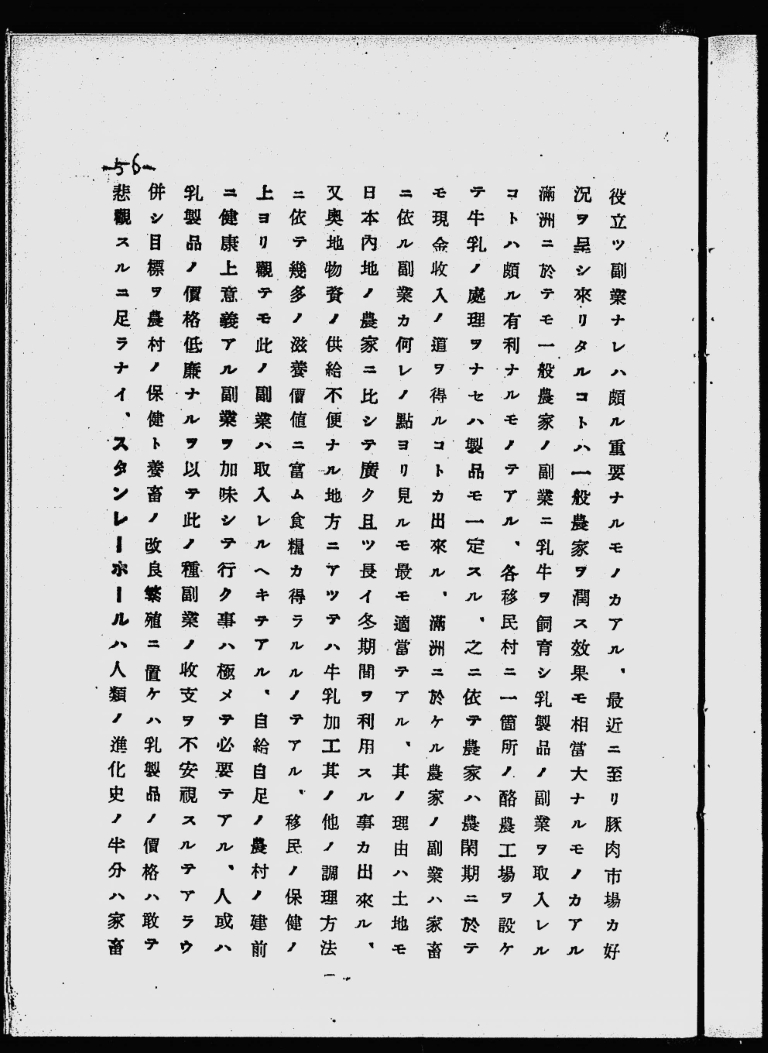 56
役立ツ副業ナレハ頗ル重要ナルモノカアル、最近ニ至リ豚肉市場カ好
況ヲ呈シ來リタルコトハ一般農家ヲ潤ス效果モ相當大ナルモノカアル
滿洲ニ於テモ一般農家ノ副業ニ乳牛ヲ飼育シ乳製品ノ副業ヲ取入レル
コトハ頗ル有利ナルモノテアル、各移民村ニ一箇所ノ酪農工場ヲ設ケ
テ牛乳ノ處理ヲナセハ製品モ一定スル、之ニ依テ農家ハ農閑期ニ於テ
モ現金收入ノ道ヲ得ルコトカ出來ル、滿洲ニ於ケル農家ノ副業ハ家畜
ニ依ル副業カ何レノ點ヨリ見ルモ最モ適當テアル、其ノ理由ハ土地モ
日本內地ノ農家ニ比シテ廣ク且ツ長イ冬期間ヲ利用スル事カ出來ル、
又奧地物資ノ供給不便ナル地方ニアツテハ牛乳加工其ノ他ノ調理方法
ニ依テ幾多ノ滋養價値ニ富ム食糧カ得ラルルノテアル、移民ノ保健ノ
上ヨリ觀テモ此ノ副業ハ取入レルヘキテアル、自給自足ノ農村ノ建前
ニ健康上意義アル副業ヲ加味シテ行ク事ハ極メテ必要テアル、人或ハ
乳製品ノ價格低廉ナルヲ以テ此ノ種副業ノ收支ヲ不安視スルテアラウ
併シ目標ヲ農村ノ保健ト養畜ノ改良繁殖ニ置ケハ乳製品ノ價格ハ敢テ
悲觀スルニ足ラナイ、スタンレーホールハ人類ノ進化史ノ半分ハ家畜